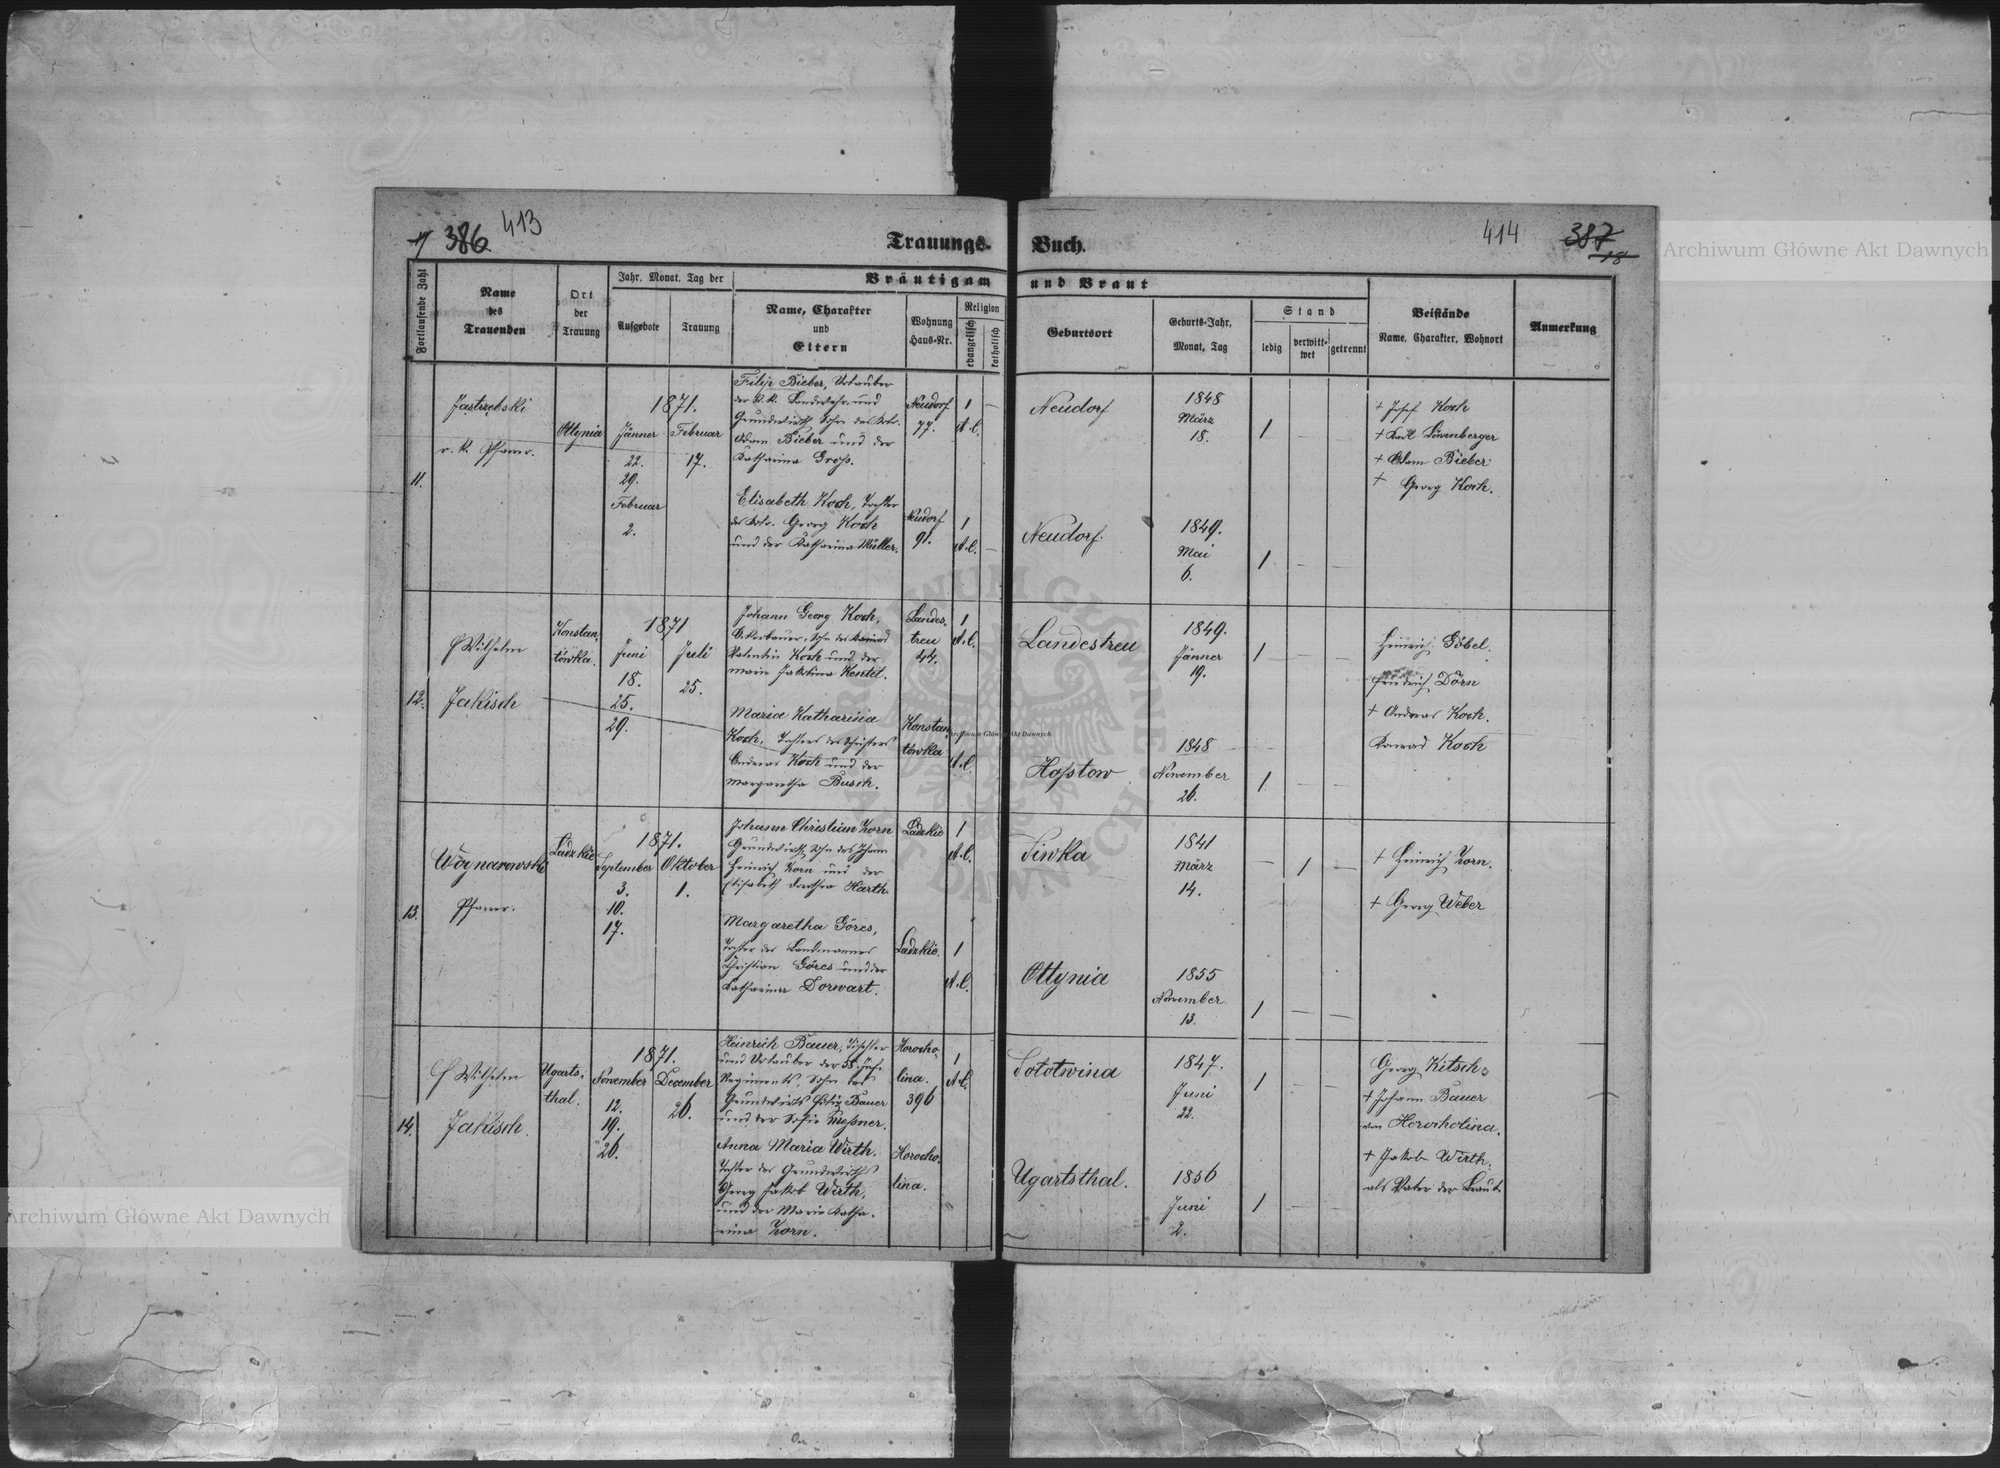 386 413
Trauungs-
Buch.
414 387
18
Archiwum Główne Akt Dawnych
Fortlaufende Zahl
Name
des
Trauenden
Ort
der
Trauung
Jahr. Monat. Tag der
Aufgebote
Trauung
Bräutigam
und Braut
Name, Charakter
und
Eltern
Wohnung
Haus-Nr.
Religion
evangelisch
katholisch
Geburtsort
Geburts-Jahr,
Monat, Tag
Stand
ledig
verwitt-
wet
getrennt
Beistände
Name. Charakter, Wohnort
Anmerkung
11.
Jastrzebski
r. k. Pfarrer.
Ottynia
1871.
Jänner
22.
29.
Februar
2.
Februar
17.
Filip Bieber, Urlauber
der k. k. Landwehr und
Grundwirth Sohn des
Adam Bieber und der
Katharina Groß.
Neudorf
77.
1
A. C.
Neudorf
1848
März
18.
1
† Josef Koch
† Karl Löwenberger
† Adam Bieber
† Georg Koch.
Elisabeth Koch, Tochter
des Georg Koch
und der Katharina Müller.
Neudorf
91.
1
A. C.
Neudorf.
1849.
Mai
6.
1
12.
Wilhelm
Jakisch
Konstan-
tówka.
1871
Juni
18.
25.
29.
Juli
25.
Johann Georg Koch,
Ackerbauer, Sohn des
Valentin Koch und der
Marie Jakobina Kentel.
Landes-
treu
44.
1
A. C.
Landestreu
1849.
Jänner
19.
1
Heinrich Göbel.
Friedrich Dörn
† Andreas Koch.
Konrad Koch
Maria Katharina
Koch, Tochter des
Andreas Koch und der
Margaretha Busch.
Konstan-
tówka
1
A. C.
Hoßtow
1848
November
26.
1
Archiwum Główne Akt Dawnych
13.
Woynarowski
Pfarrer.
Ladzkie
1871.
September
3.
10.
17.
Oktober
1.
Johann Christian Zorn
Grundwirth, Sohn des Johann
Heinrich Zorn und der
Elisabeth Dorothea Harth.
Ladzkie
1
A. C.
Siwka
1841
März
14.
1
† Heinrich Zorn.
† Georg Weber
Margaretha Göres,
Tochter des Landmannes
Christian Göres und der
Katharina Dorwart.
Ladzkie.
1
A. C.
Ottynia
1855
November
13.
1
14.
Wilhelm
Jakisch.
Ugarts-
thal.
1871.
November
12.
19.
26.
December
26.
Heinrich Bauer, Tischler
und Urlauber der 58. Inf.
Regiments, Sohn des
Grundwirts Bauer
und der Sofie
Horocho-
lina.
396
1
A. C.
Sototwina
1847.
Juni
22.
1
Georg Kitsch.
† Johann Bauer
von Horocholina.
† Jakob Wirth.
als Vater der Braut.
Anna Maria Wirth.
Tochter des Grundwirths
Georg Jakob Wirth,
und der Marie Katha-
rina Zorn.
Horocho-
lina.
Ugartsthal.
1856
Juni
2.
1
Archiwum Główne Akt Dawnych